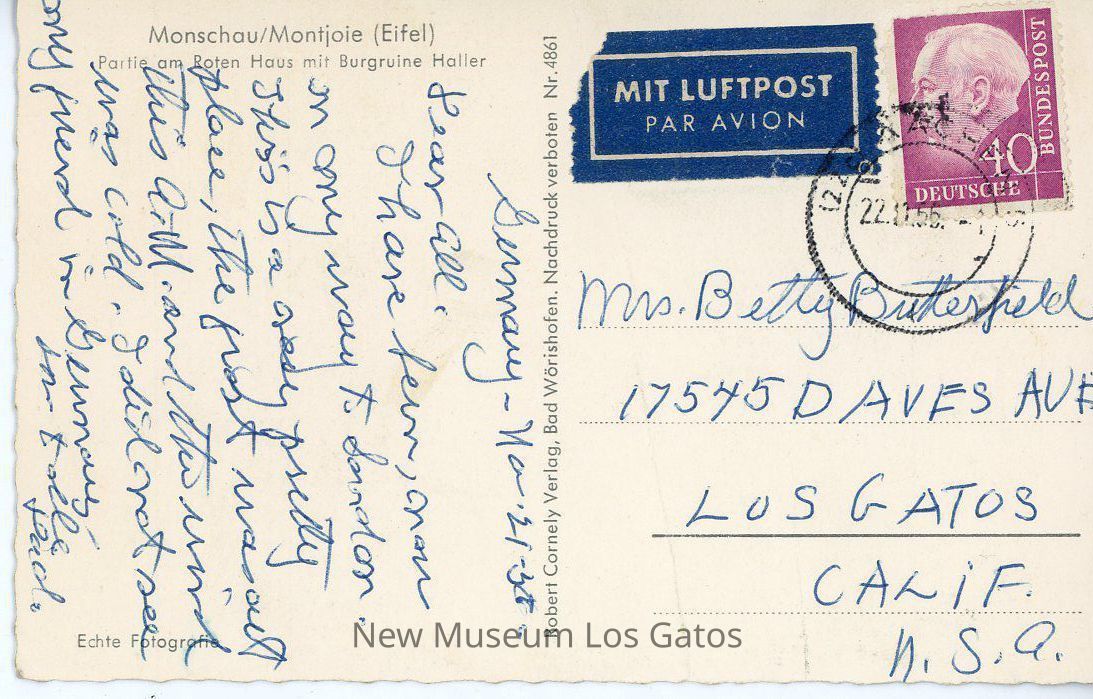 Monschau/Montjoie (Eifel)
Partie am Roten Haus mit Burgruine Haller
Germany - Nov - 21-56.
Dear all:
I have been, on
on my way to London.
This is a very pretty
place, the frost was out
this A.M. and the wind
was cold. I did not see
my friend in Germany
Dad.
Echte Fotografie
Robert Cornely Verlag, Bad Wörishofen. Nachdruck verboten Nr. 4861
MIT LUFTPOST
PAR AVION
DEUTSCHE
BUNDESPOST
40
22.11.56.
Mrs. Betty Butterfield
17545 DAVES AVE
LOS GATOS
CALIF.
U.S.A.
New Museum Los Gatos